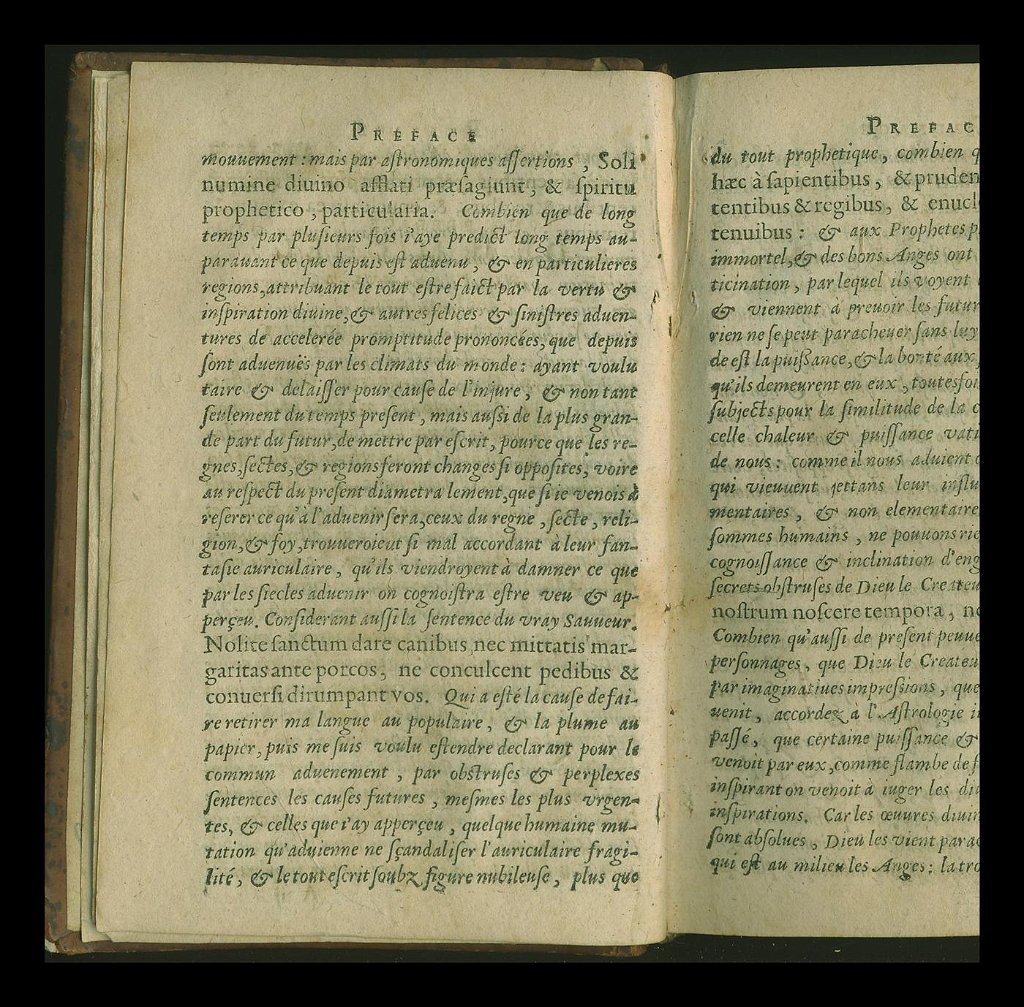 PREFACE
mouuement : mais par astronomiques assertions, Soli
numine diuino afflati præsagiunt, & spiritu
prophetico, particularia. Combien que de long
temps par plusieurs fois i'aye predict long temps au-
parauant ce que depuis est aduenu, & en particulieres
regions, attribuant le tout estre faict par la vertu &
inspiration diuine, & autres felices & sinistres aduen-
tures de accelerée promptitude prononcées, que depuis
sont aduenuës par les climats du monde : ayant voulu
taire & delaisser pour cause de l'iniure, & non tant
seulement du temps present, mais aussi de la plus gran-
de part du futur, de mettre par escrit, pource que les re-
gnes, sectes, & regions feront changes si opposites, voire
au respect du present diametralement, que si ie venois à
reserer ce qu'à l'aduenir sera, ceux du regne, secte, reli-
gion, & foy, trouueroient si mal accordant à leur fan-
tasie auriculaire, qu'ils viendroyent à damner ce que
par les siecles aduenir on cognoistra estre veu & ap-
perçeu. Considerant aussi la sentence du vray Sauueur.
Nolite sanctum dare canibus nec mittatis mar-
garitas ante porcos, ne conculcent pedibus &
conuersi dirumpant vos. Qui a esté la cause de fai-
re retirer ma langue au populaire, & la plume au
papier, puis me suis voulu estendre declarant pour le
commun aduenement, par obstruses & perplexes
sentences les causes futures, mesmes les plus vrgen-
tes, & celles que i'ay apperçeu, quelque humaine mu-
tation qu'aduienne ne sçandaliser l'auriculaire fragi-
lité, & le tout escrit soubz figure nubileuse, plus que
PREFAC
du tout prophetique, combien q
hæc à sapientibus, & pruden
tentibus & regibus, & enucl
tenuibus : & aux Prophetes p
immortel, & des bons Anges ont
ticination, par lequel ils voyent
& viennent à preuoir les futur
rien ne se peut paracheuer sans luy
de est la puissance, & la bonté aux
qu'ils demeurent en eux, toutesfoi
subiects pour la similitude de la c
celle chaleur & puissance vati
de nous : comme il nous aduient
qui vieuuent iettans leur influ
mentaires, & non elementaire
sommes humains, ne pouuons rie
cognoissance & inclination d'eng
secrets obstruses de Dieu le Createu
nostrum noscere tempora, ne
Combien qu'aussi de present peuue
personnages, que Dieu le Createu
par imaginatiues impressions, que
uenit, accordez à l'Astrologie i
passé, que certaine puissance &
venoit par eux, comme flambe de f
inspirant on venoit à iuger les diu
inspirations. Car les œuures diuin
sont absolues, Dieu les vient parac
qui est au milieu les Anges : la tro